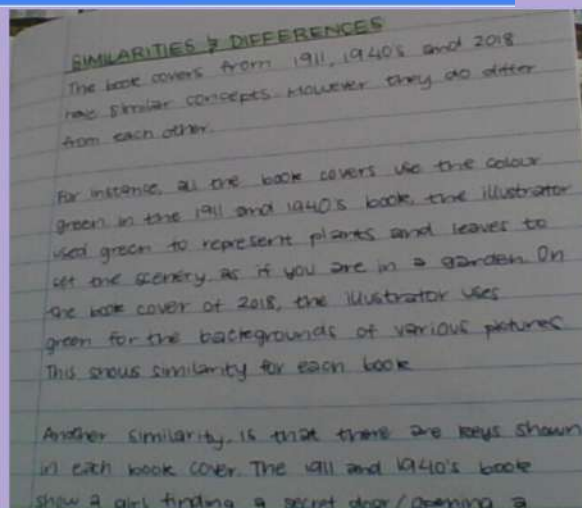 SIMILARITIES & DIFFERENCES
The book covers from 1911, 1940's and 2018
have similar concepts. However they do differ
from each other.
For instance, all the book covers use the colour
green, in the 1911 and 1940's book, the illustrator
used green to represent plants and leaves to
set the scenery, as if you are in a garden. On
the book cover of 2018, the illustrator uses
green for the backgrounds of various pictures.
This shows similarity for each book
Another similarity, is that there are keys shown
in each book cover. The 1911 and 1940's book
show a girl finding a secret door/opening a